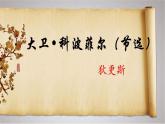 大卫·科波菲尔（节选）
狄更斯